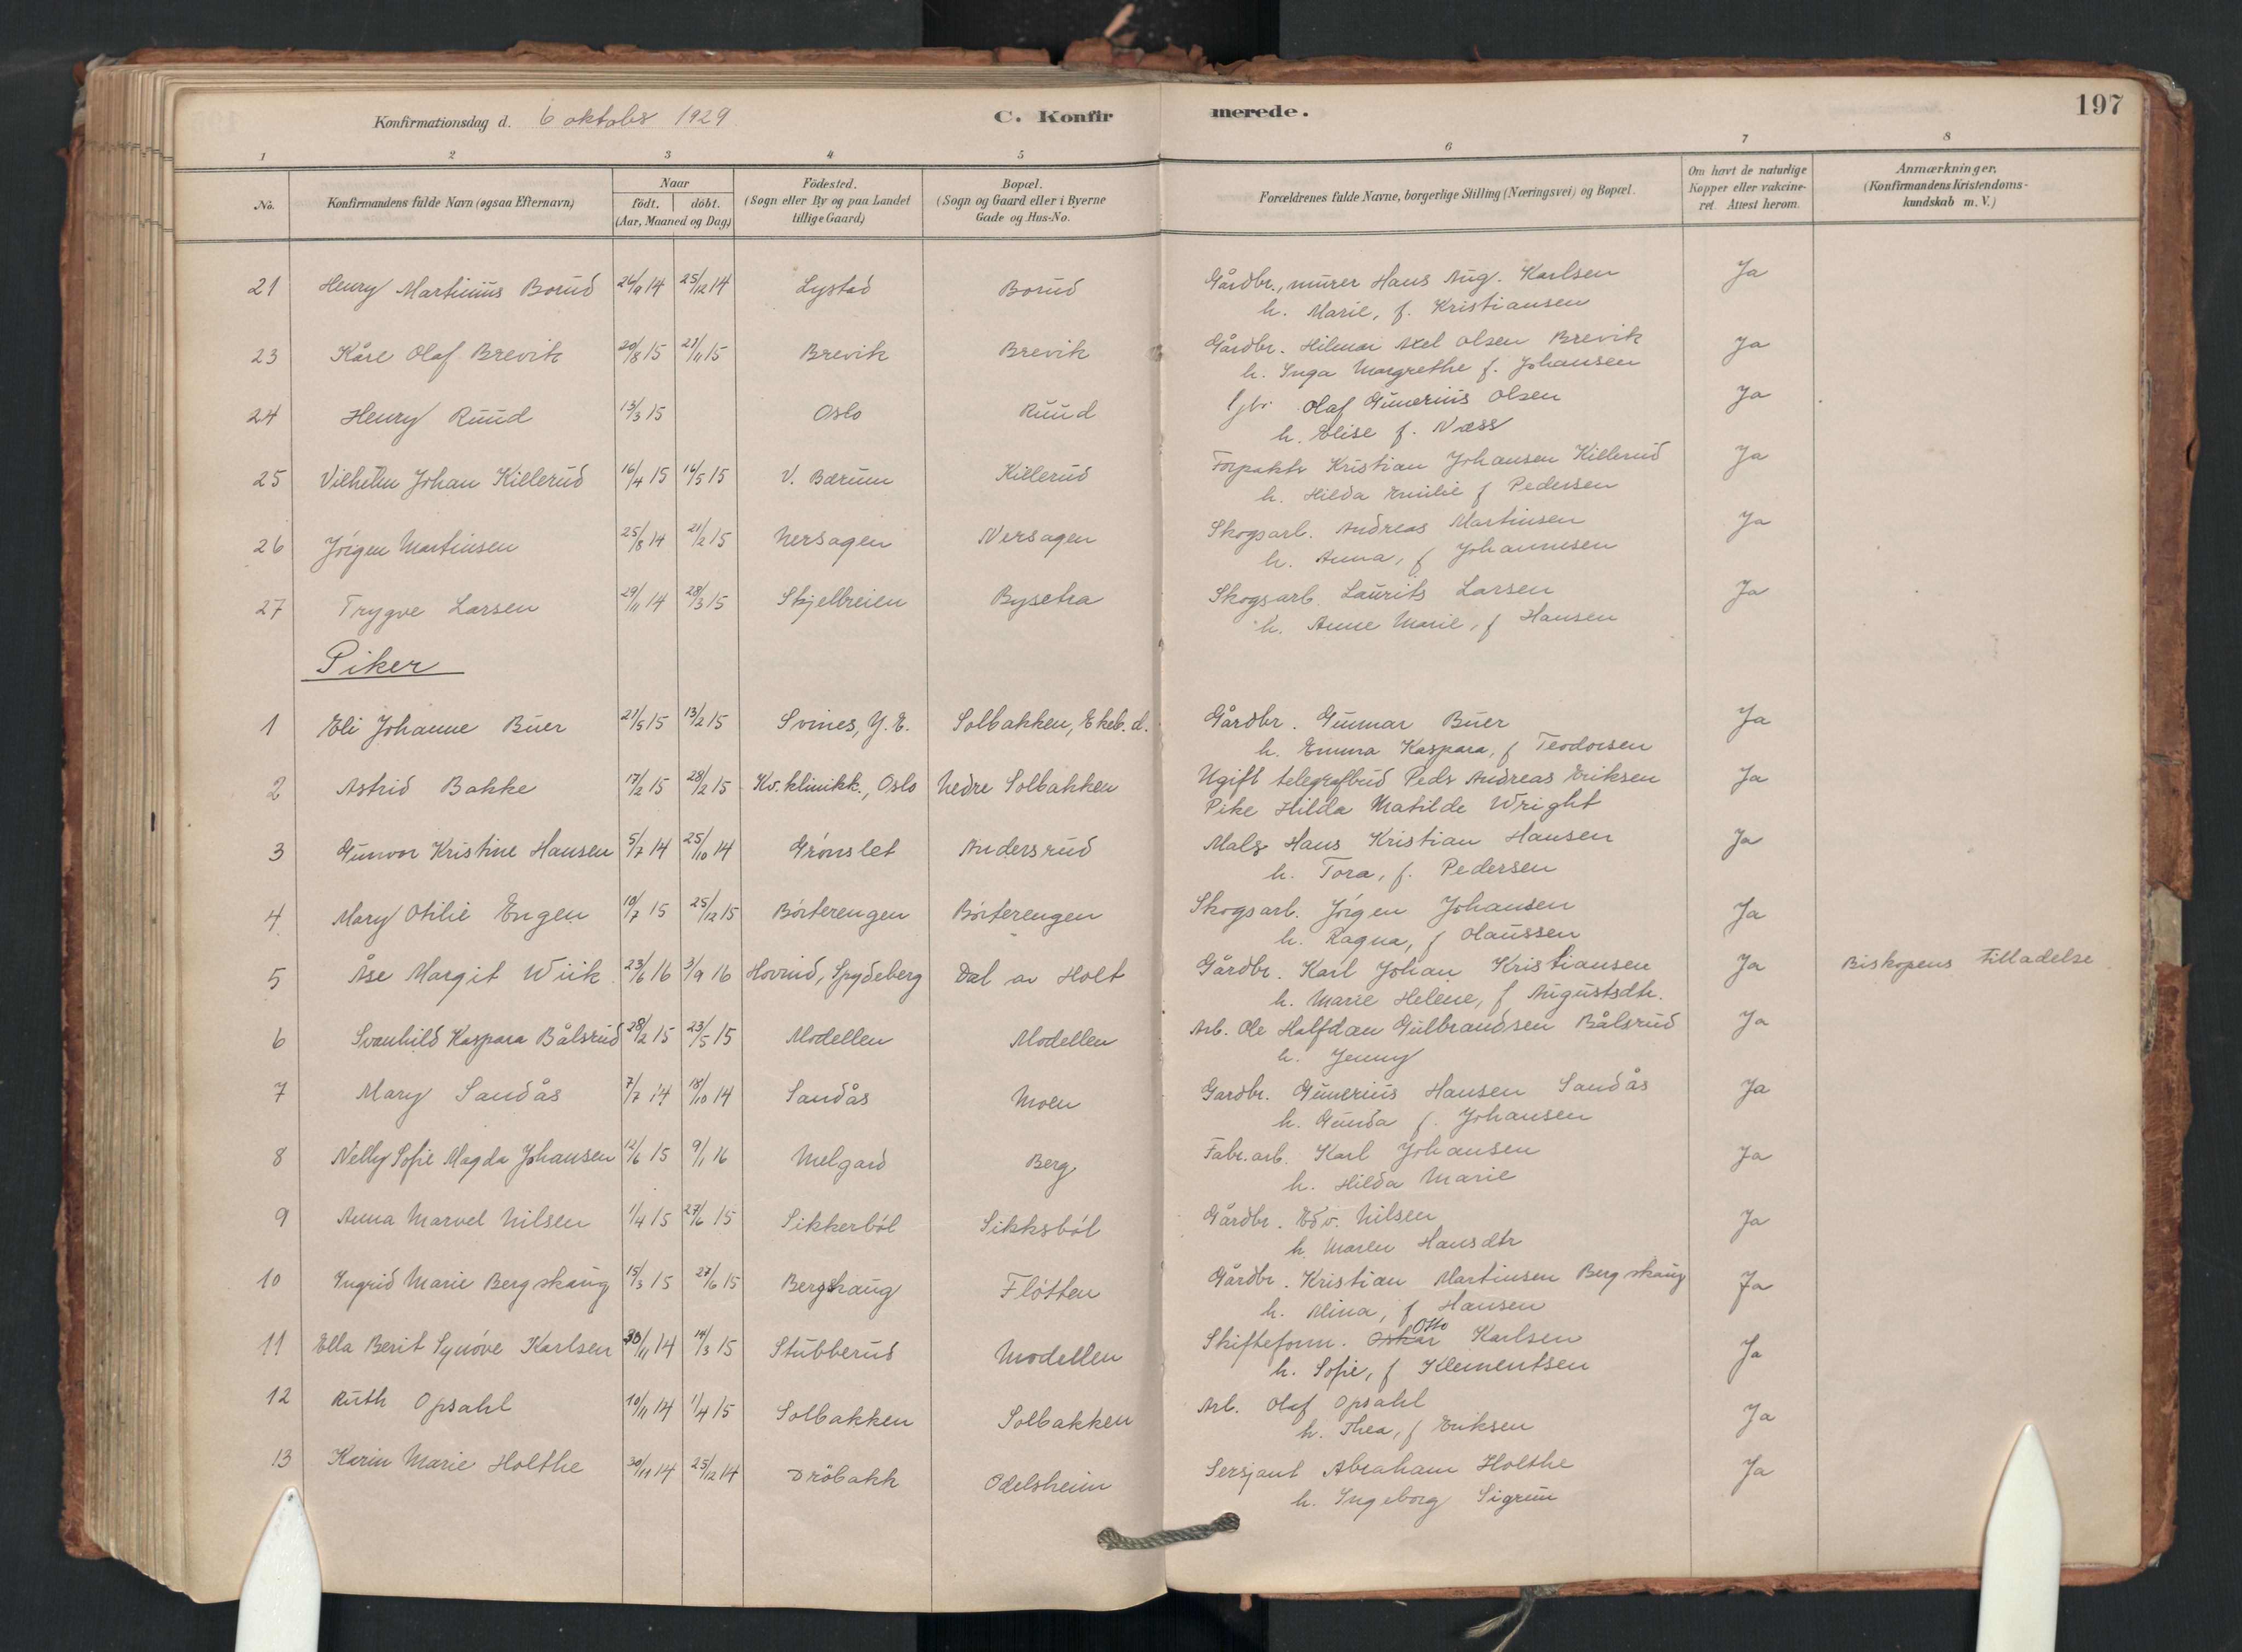 Konfirmationsdag d. 6 oktober 1929. C. Konfirmerede. 197
1 2 3 4 5 6 7 8
No. Konfirmandens fulde Navn (ogsaa Efternavn) Naar födt. döbt. (Aar, Maaned og Dag) Födested. (Sogn eller By og paa Landet tillige Gaard) Bopæl. (Sogn og Gaard eller i Byerne Gade og Hus-No. Forældrenes fulde Navne, borgerlige Stilling (Næringsvei) og Bopæl. Om havt de naturlige Kopper eller vakcineret. Attest herom. Anmærkninger. (Konfirmandens Kristendomskundskab m. V.)
21 Henry Martinius Borud 26/9 14 25/12 14 Lystad Borud Gårdbr., murer Hans Aug. Karlsen Ja
h. Marie, f. Kristiansen
23 Kåre Olaf Brevik 20/8 15 21/11 15 Brevik Brevik Gårdbr. Hilmar Axel Olsen Brevik Ja
h. Inga Margrethe f. Johansen
24 Henry Ruud 13/3 15 Oslo Ruud Olaf Gunerius Olsen Ja
h. Elise f. Næss
25 Vilhelm Johan Killerud 16/4 15 16/5 15 V. Bærum Killerud Forpakter Kristian Johansen Killerud Ja
h. Hilda Emilie f Pedersen
26 Jörgen Martinsen 25/8 14 21/2 15 Nersagen Nersagen Skogsarb. Andreas Martinsen Ja
h. Anna, f Johannesen
27 Trygve Larsen 29/11 14 28/3 15 Skjellreien Bysetra Skogsarb. Laurits Larsen Ja
h. Anne Marie, f Hansen
Piker
1 Eli Johanne Buer 21/5 15 13/2 15 Svines, Y. E. Solbakken, Ekeb. d. Gårdbr. Gunnar Buer Ja
h. Emma Kaspara, f Teodorsen
2 Astrid Bakke 17/2 15 28/2 15 Kv. klinikk., Oslo Nedre Solbakken Ugift telegrafbud Peder Andreas Eriksen Ja
Pike Hilda Matilde Wright
3 Gunvor Kristine Hansen 5/7 14 25/10 14 Grönslet Andersrud Maler Hans Kristian Hansen Ja
h. Tora, f. Pedersen
4 Mary Otilie Engen 10/7 15 25/12 15 Börterengen Börterengen Skogsarb. Jörgen Johansen Ja
h. Ragna, f Olaussen
5 Åse Margit Wiik 23/6 16 3/9 16 Hovind, Spydeberg Dal av Holt Gårdbr. Karl Johan Kristiansen Ja Biskopens tilladelse
h. Marie Helene, f Augustsdtr.
6 Svanhild Kaspara Bålsrud 28/2 15 23/5 15 Modellen Modellen Arb. Ole Halfdan Gulbrandsen Bålsrud Ja
h. Jenny
7 Mary Sandås 7/7 14 18/10 14 Sandås Moen Gardbr. Gunerius Hansen Sandås Ja
h. Gunda f. Johansen
8 Nelly Sofie Magda Johansen 12/6 15 9/1 16 Melgard Berg Fabr. arb. Karl Johansen Ja
h. Hilda Marie
9 Anna Marvel Nilsen 1/4 15 27/6 15 Sikkerböl Sikksböl Gårdbr. Edv. Nilsen Ja
h. Maren Hansdtr
10 Ingrid Marie Bergskaug 15/3 15 27/6 15 Bergskaug Flötten Gårdbr. Kristian Martinsen Bergskaug Ja
h. Mina, f Hansen
11 Ella Berit Synöve Karlsen 30/11 14 14/3 15 Stubberud Modellen Skifteform. Oskar Otto Karlsen Ja
h. Sofie, f Klementsen
12 Ruth Opsahl 10/11 14 1/4 15 Solbakken Solbakken Arb. Olaf Opsahl Ja
h. Thea, f Eriksen
13 Karin Marie Holthe 30/11 14 25/12 14 Dröbakk Odelsheim Sersjant Abraham Holthe Ja
h. Ingeborg Sigrun